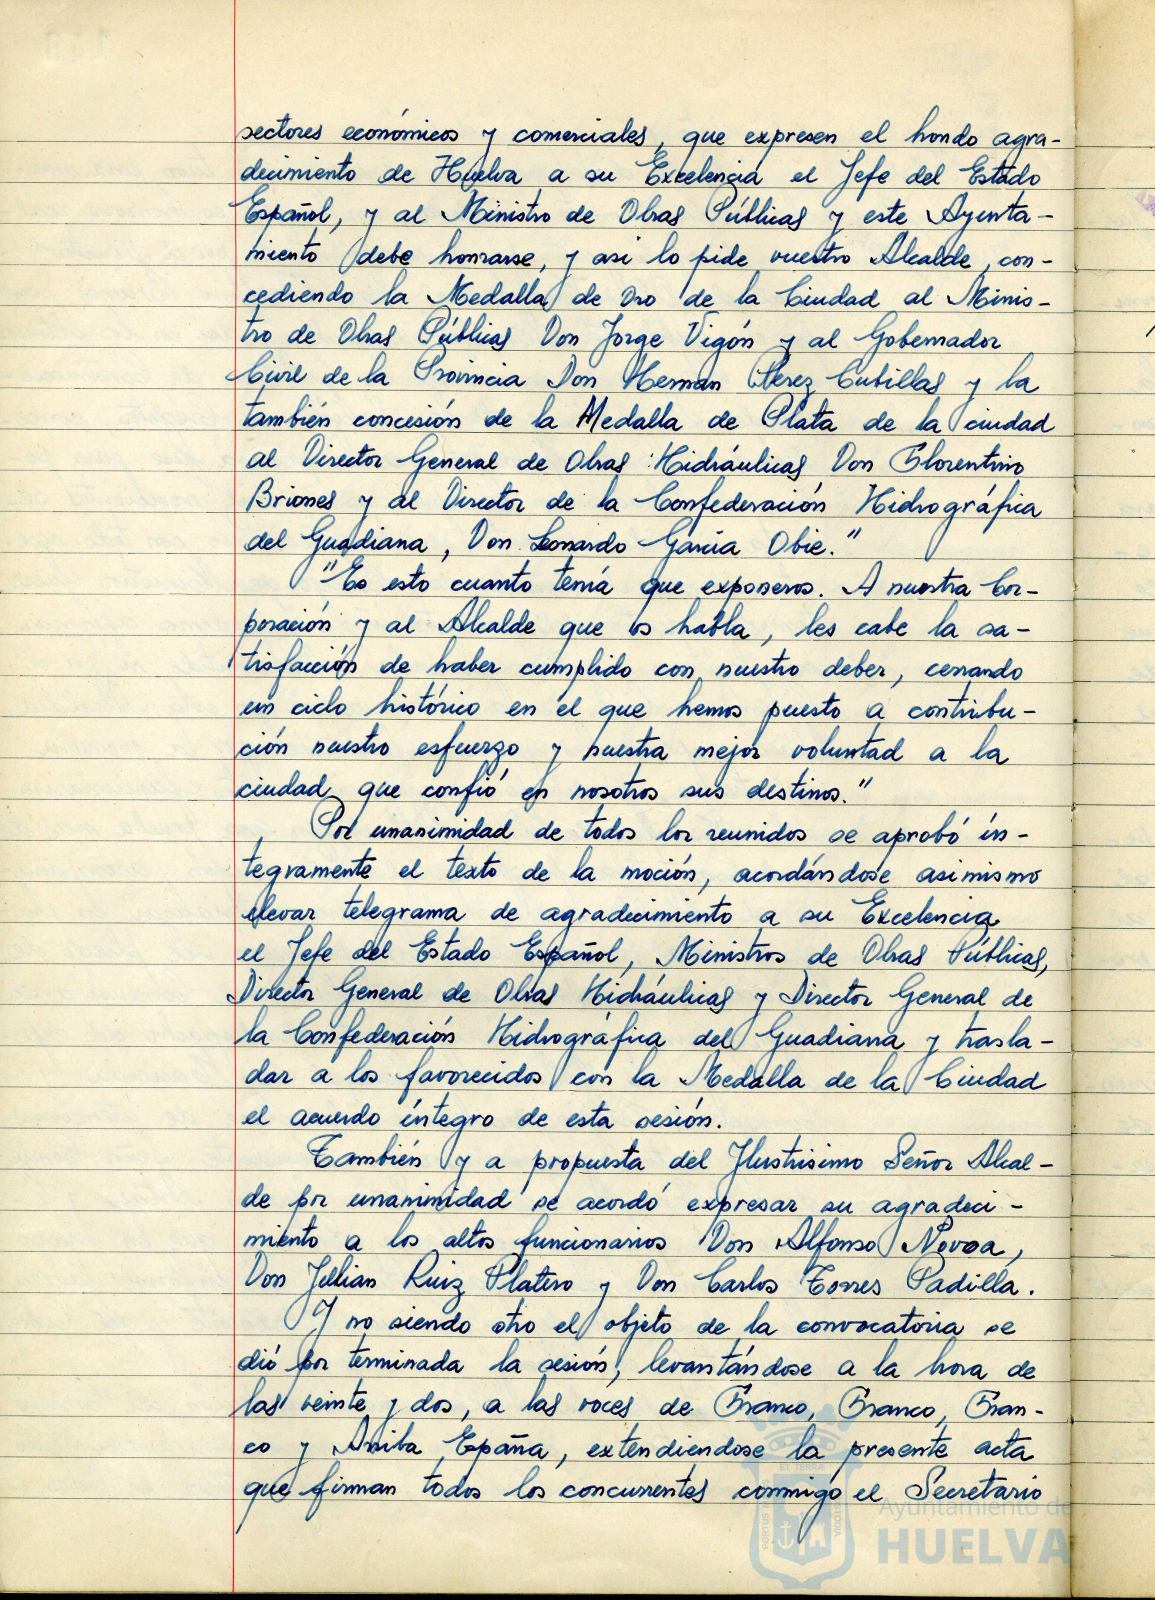 sectores económicos y comerciales, que expresen el hondo agra-
decimiento de Huelva a su Excelencia el Jefe del Estado
Español, y al Ministro de Obras Públicas y este Ayunta-
miento debe honrarse, y asi lo pide vuestro Alcalde, con-
cediendo la Medalla de Oro de la Ciudad al Minis-
tro de Obras Públicas Don Jorge Vigón y al Gobernador
Civil de la Provincia Don Hernan Perez Cubillas y la
también concesión de la Medalla de Plata de la ciudad
al Director General de Obras Hidráulicas Don Florentino
Briones y al Director de la Confederación Hidrográfica
del Guadiana, Don Leonardo García Obie."
"Es esto cuanto tenía que exponeros. A nuestra Cor-
poración y al Alcalde que os habla, les cabe la sa-
tisfacción de haber cumplido con nuestro deber, cerrando
un ciclo histórico en el que hemos puesto a contribu-
ción nuestro esfuerzo y nuestra mejor voluntad a la
ciudad que confió en nosotros sus destinos."
Por unanimidad de todos los reunidos se aprobó ín-
tegramente el texto de la moción, acordándose asimismo
elevar telegrama de agradecimiento a su Excelencia
el Jefe del Estado Español, Ministros de Obras Públicas,
Director General de Obras Hidráulicas y Director General de
la Confederación Hidrográfica del Guadiana y trasla-
dar a los favorecidos con la Medalla de la Ciudad
el acuerdo íntegro de esta sesión.
También y a propuesta del Ilustrisimo Señor Alcal-
de por unanimidad se acordó expresar su agradeci-
miento a los altos funcionarios Don Alfonso Novoa,
Don Jullian Ruiz Platero y Don Carlos Torres Padilla.
Y no siendo otro el objeto de la convocatoria se
dió por terminada la sesión, levantándose a la hora de
las veinte y dos, a las voces de Franco, Franco, Fran-
co y Arriba España, extendiendose la presente acta
que firman todos los concurrentes conmigo el Secretario
Ayuntamiento de
HUELVA